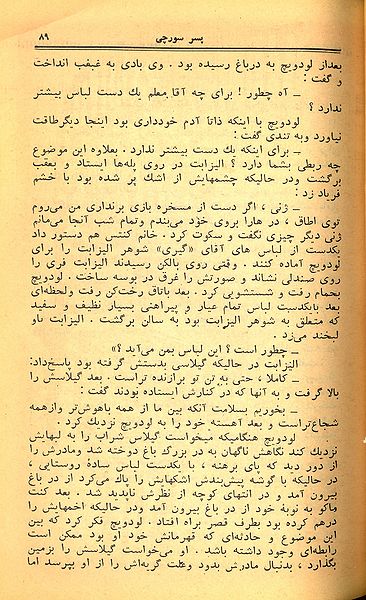 ۸۹ پسر سورچی
بعداز لودویچ به درباغ رسیده بود . وی بادی به غبغب انداخت
و گفت :
ــ آه چطور ! برای چه آقا معلم یك دست لباس بیشتر
ندارد ؟
لودویچ با اینکه ذاتاً آدم خودداری بود اینجا دیگر طاقت
نیاورد وبه تندی گفت :
ــ برای اینکه یك دست بیشتر ندارد . بعلاوه این موضوع
چه ربطی بشما دارد ؟ الیزابت در روی پله‌ها ایستاد و بعقب
برگشت ودر حالیکه چشمهایش از اشك پر شده بود با خشم
فریاد زد :
ــ ژنی ، اگر دست از مسخره بازی برنداری من میروم
توی اطاق ، در هارا بروی خود می‌بندم وتمام شب آنجا می‌مانم
ژنی دیگر چیزی نگفت و سکوت کرد . خانم کنتس هم دستور داد
یکدست از لباس های آقای «گیری» شوهر الیزابت را برای
لودویچ آماده کنند . وقتی روی بالکن رسیدند الیزابت فری را
روی صندلی نشاند و صورتش را غرق در بوسه ساخت . لودویچ
بحمام رفت و شستشویی کرد . بعد باتاق رخت‌کن رفت ولحظه‌ای
بعد بایکدست لباس تمام عیار و پیراهنی بسیار نظیف و سفید
که متعلق به شوهر الیزابت بود به سالن برگشت . الیزابت باو
لبخند می‌زد .
ــ چطور است ؟ این لباس بمن می‌آید ؟»
الیزابت در حالیکه گیلاسی بدستش گرفته بود پاسخ‌داد:
ــ کاملا ، حتی به تن تو برازنده تراست . بعد گیلاسش را
بالا گرفت و به آنها که در کنارش ایستاده بودند گفت :
ــ بخوریم بسلامت آنکه بین ما از همه باهوش‌تر وازهمه
شجاع‌تراست و بعد آهسته خود را به لودویچ نزدیك کرد .
لودویچ هنگامیکه میخواست گیلاس شراب را به لبهایش
نزدیك کند نگاهش ناگهان به در بزرگ باغ دوخته شد ومادرش را
از دور دید که پای برهنه ، با یکدست لباس سادهٔ روستایی ،
در حالیکه با گوشه پیش‌بندش اشکهایش را پاك می‌کرد از در باغ
بیرون آمد و در انتهای کوچه از نظرش ناپدید شد . بعد کنت
ماکو به نوبهٔ خود از در باغ بیرون آمد ودر حالیکه اخمهایش را
درهم کرده بود بطرف قصر براه افتاد . لودویچ فکر کرد که بین
این موضوع و حادثه‌ای که قهرمانش خود او بود ممکن است
رابطه‌ای وجود داشته باشد . او می‌خواست گیلاسش را بزمین
بگذارد ، بدنبال مادرش بدود وعلت گریه‌اش را از او بپرسد اما